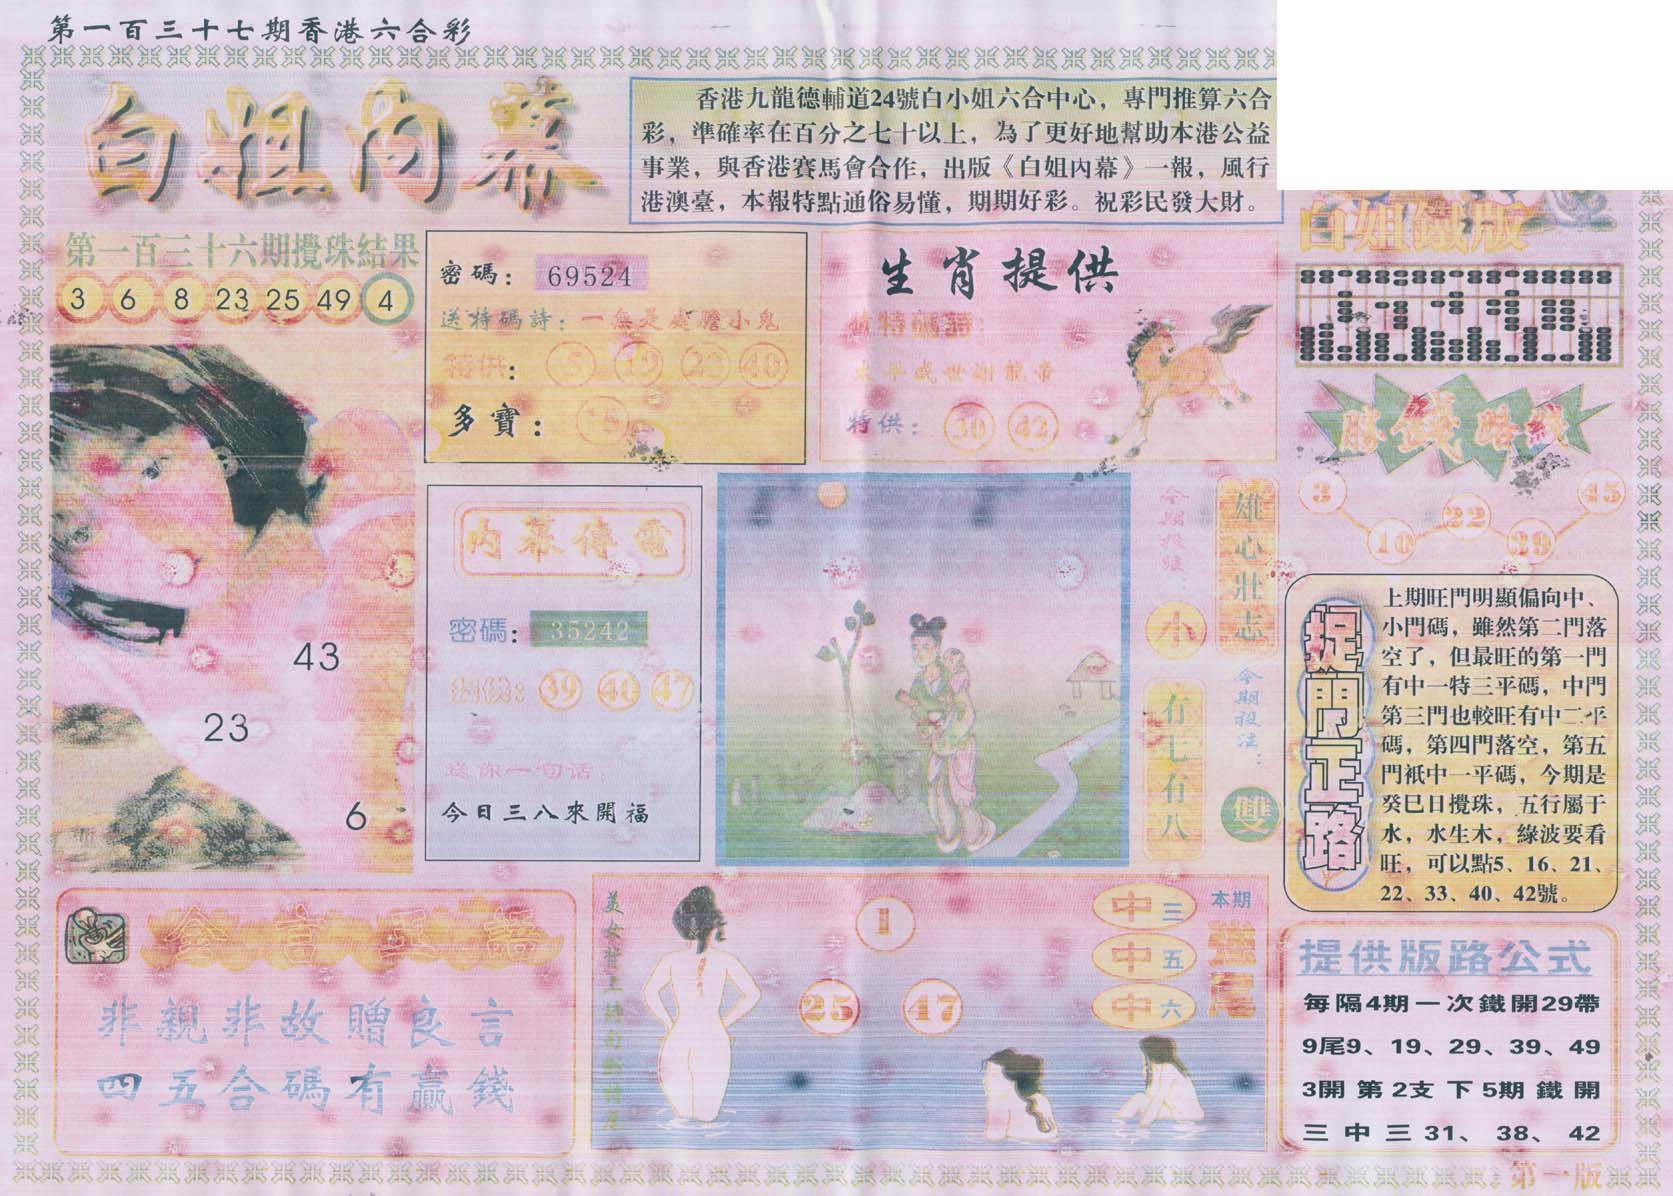 第一百三十七期香港六合彩
白姐内幕
香港九龍德輔道24號白小姐六合中心，專門推算六合
彩，準確率在百分之七十以上，為了更好地幫助本港公益
事業，與香港賽馬會合作，出版《白姐內幕》一報，風行
港澳臺，本報特點通俗易懂，期期好彩。祝彩民發大財。
白姐鐵版
第一百三十六期攪珠結果
3 6 8 23 25 49 4
43
23
6
密碼：69524
送特碼詩：一無是處膽小鬼
特供：
19
40
多寶：
生肖提供
特供：30 42
3 10 22 39 45
內幕傳電
密碼：35242
39 40 47
送你一句话：
今日三八來開福
今期投注：
小
雄心壯志
有七有八
今期投注：
雙
捉門正路
上期旺門明顯偏向中、
小門碼，雖然第二門落
空了，但最旺的第一門
有中一特三平碼，中門
第三門也較旺有中二平
碼，第四門落空，第五
門衹中一平碼，今期是
癸巳日攪珠，五行屬于
水，水生木，綠波要看
旺，可以點5、16、21、
22、33、40、42號。
非親非故贈良言
四五合碼有贏錢
1
25 47
本期
強尾
中三
中五
中六
提供版路公式
每隔4期一次鐵開29帶
9尾9、19、29、39、49
3開第2支下5期鐵開
三中三31、38、42
第一版